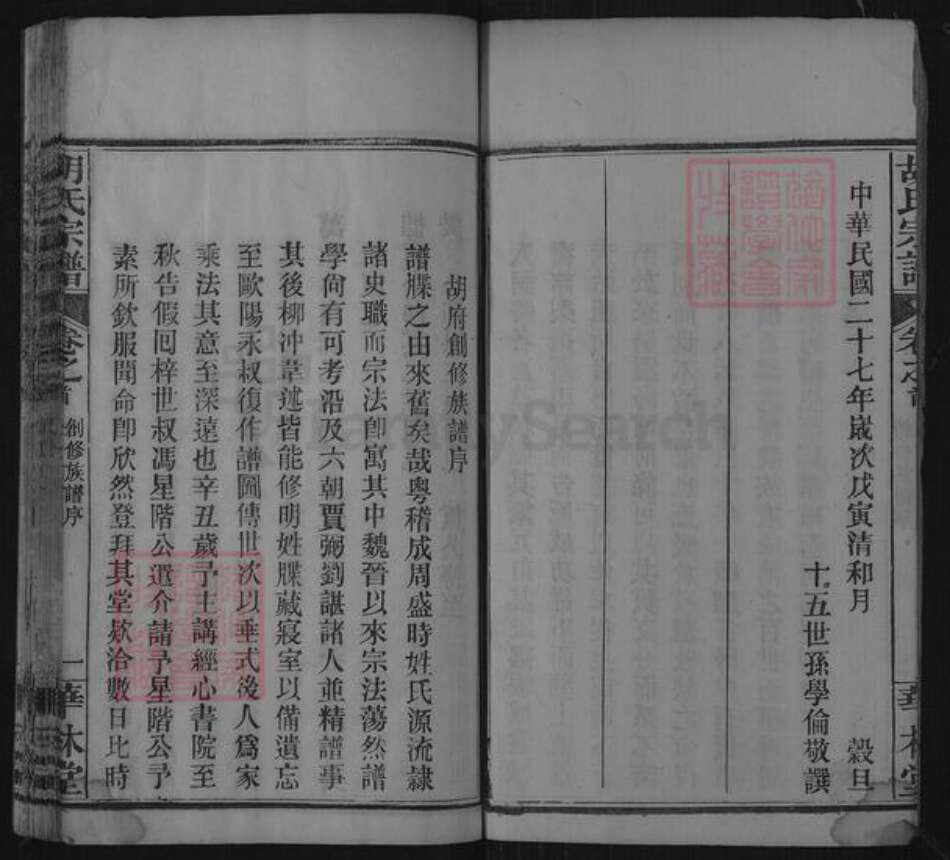 胡氏宗譜
卷之首
華林堂
中華民國二十七年嵗次戊寅清和月 穀旦
十五世孫學倫敬譔
胡府創修族譜序
譜牒之由來舊矣哉粵稽成周盛時姓氏源流隷
諸史職而宗法卽寓其中魏晉以來宗法蕩然譜
學尙有可考沿及六朝賈弼劉諶諸人並精譜事
其後柳冲韋述皆能修明姓牒藏寢室以備遺忘
至歐陽永叔復作譜圖傳世次以垂式後人爲家
乘法其意至深遠也辛丑歲予主講經心書院至
秋告假回梓世叔馮星階公遣介請予星階公予
素所欽服聞命卽欣然登拜其堂欵洽數日比時
胡氏宗譜
卷之首
創修族譜序
一
華林堂
FamilySearch